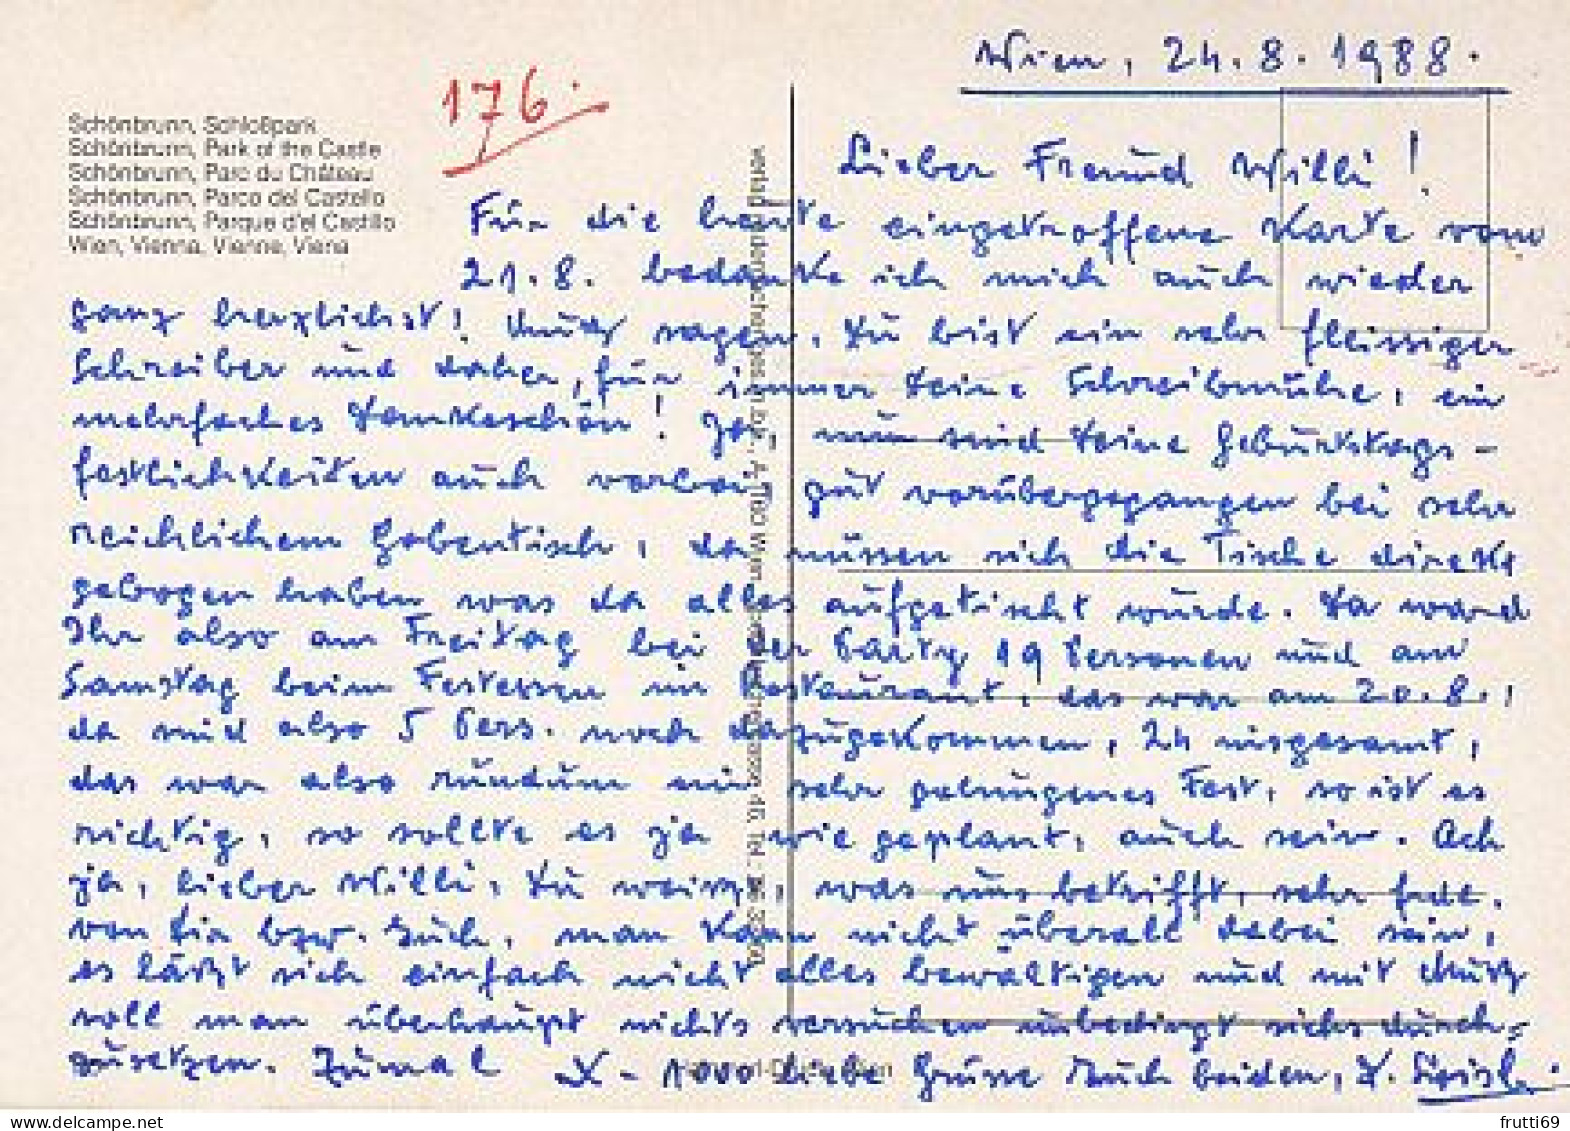 Wien, 24.8.1988.
176.
Schönbrunn, Schloßpark
Schönbrunn, Park of the Castle
Schönbrunn, Parc du Château
Schönbrunn, Parco del Castello
Schönbrunn, Parque d'el Castillo
Wien, Vienna, Vienne, Viena
Lieber Freund Willi!
Für die heute eingetroffene Karte vom
21.8. bedanke ich mich auch wieder
ganz herzlichst! Muß sagen, Du bist ein sehr fleissiger
Schreiber und daher, für immer Deine Schreibmühe, ein
mehrfaches Dankeschön! Ja, nun sind Deine Geburtstags-
festlichkeiten auch vorbei, gut vorübergegangen bei sehr
reichlichem Gabentisch, da müssen sich die Tische direkt
gebogen haben was da alles aufgetischt wurde. Da ward
Ihr also am Freitag bei der Party 19 Personen und am
Samstag beim Festessen im Restaurant, das war am 20.8.,
da sind also 5 Pers. noch dazugekommen, 24 insgesamt,
das war also rundum ein sehr gelungenes Fest, so ist es
richtig, so sollte es ja wie geplant, auch sein. Ach
ja, lieber Willi, Du weißt, was uns betrifft, sehr
von Dir bzw. Euch, man kann nicht überall dabei sein,
es läßt sich einfach nicht alles bewältigen und mit Muß
soll man überhaupt nichts versuchen unbedingt durch-
zusetzen. Zumal 1000 liebe Grüsse Euch beiden,